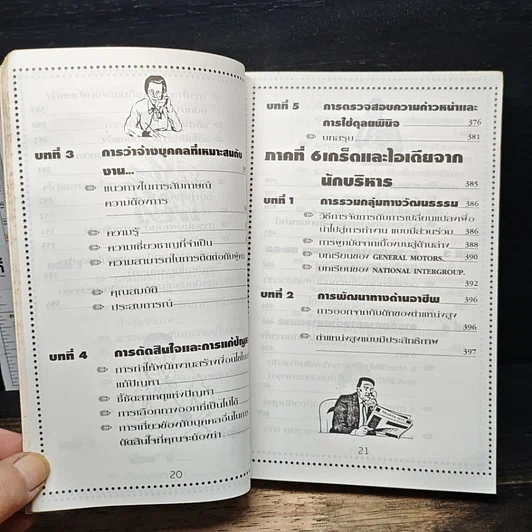 บทที่ 3 การว่าจ้างบุคคลที่เหมาะสมกับ
งาน...
แนวทางในการสัมภาษณ์
ความต้องการ
ความรู้
ความเชี่ยวชาญที่จำเป็น
ความสามารถในการติดต่อกับผู้คน
คุณสมบัติ
ประสบการณ์
บทที่ 4 การตัดสินใจและการแก้ปัญหา
การทำให้พนักงานสร้างเงื่อนไขในการ
แก้ปัญหา
ชี้ชัดสาเหตุแห่งปัญหา
การเลือกทางออกที่เป็นไปได้
การเกี่ยวข้องกับบุคคลอื่นในการ
ตัดสินใจที่คุณจะต้องทำ
20
บทที่ 5 การตรวจสอบความก้าวหน้าและ
การใช้ดุลยพินิจ 376
บทสรุป 381
ภาคที่ 6 เกร็ดและไอเดียจาก
นักบริหาร 385
บทที่ 1 การรวมกลุ่มทางวัฒนธรรม 386
วิธีการจัดการกับการเปลี่ยนแปลงเพื่อ
นำไปสู่การทำงาน แบบมีส่วนร่วม 386
การผูกมัดจากเบื้องบนสู่ด้านล่าง 388
บทเรียนของ GENERAL MOTORS. 390
บทเรียนของ NATIONAL INTERGROUP.
392
บทที่ 2 การพัฒนาทางด้านอาชีพ 396
การออกจากกับดักของตำแหน่งสูง
396
ตำแหน่งสูงแบบมีประสิทธิภาพ
397
21